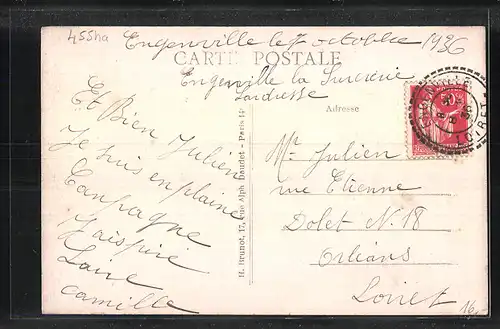 455ha
Engenville le 7 octobre 1936
CARTE POSTALE
Engenville la Sucrerie
Adresse
50c
LOIRET
Et Bien Julien
Je suis en plaine
Canpagne
Camille
H. Brunot, 17, rue Alph Daudet - Paris 14
Mr Julien
rue Etienne
Dolet N. 18
Orléans
Loiret
16,